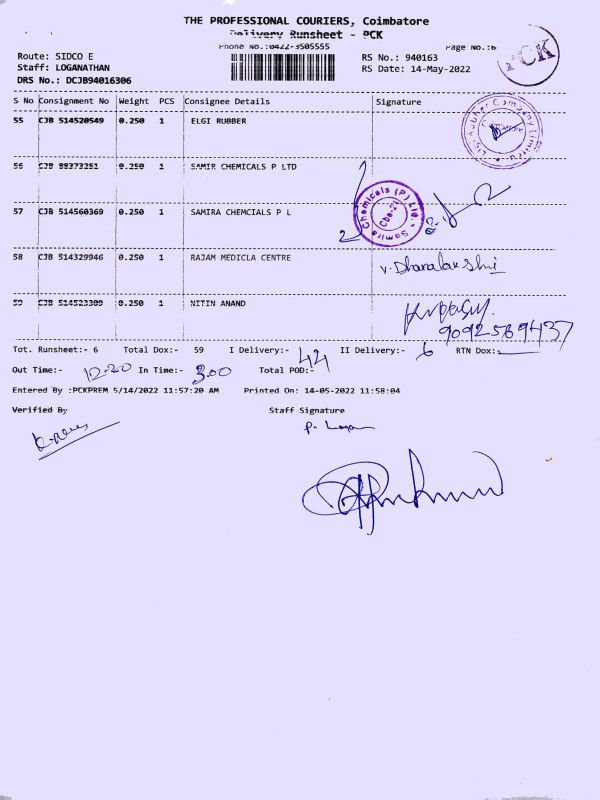 THE PROFESSIONAL COURIERS, Coimbatore
Delivery Runsheet - PCK
Phone No.:0422-3505555
Page No.:6
PCK
Route: SIDCO E
RS No.: 940163
Staff: LOGANATHAN
RS Date: 14-May-2022
DRS No.: DCJB94016306
S No Consignment No Weight PCS Consignee Details Signature
55 CJB 514520549 0.250 1 ELGI RUBBER
56 CJB 98373251 0.250 1 SAMIR CHEMICALS P LTD
57 CJB 514560369 0.250 1 SAMIRA CHEMCIALS P L
Samira Chemicals (P) Ltd.
Cbe-21
58 CJB 514329946 0.250 1 RAJAM MEDICLA CENTRE
59 CJB 514523309 0.250 1 NITIN ANAND
9092589437
Tot. Runsheet:- 6 Total Dox:- 59 I Delivery:- 44 II Delivery:- 6 RTN Dox:-
Out Time:- 12-20 In Time:- 3.00 Total POD:-
Entered By :PCKPREM 5/14/2022 11:57:20 AM Printed On: 14-05-2022 11:58:04
Verified By Staff Signature